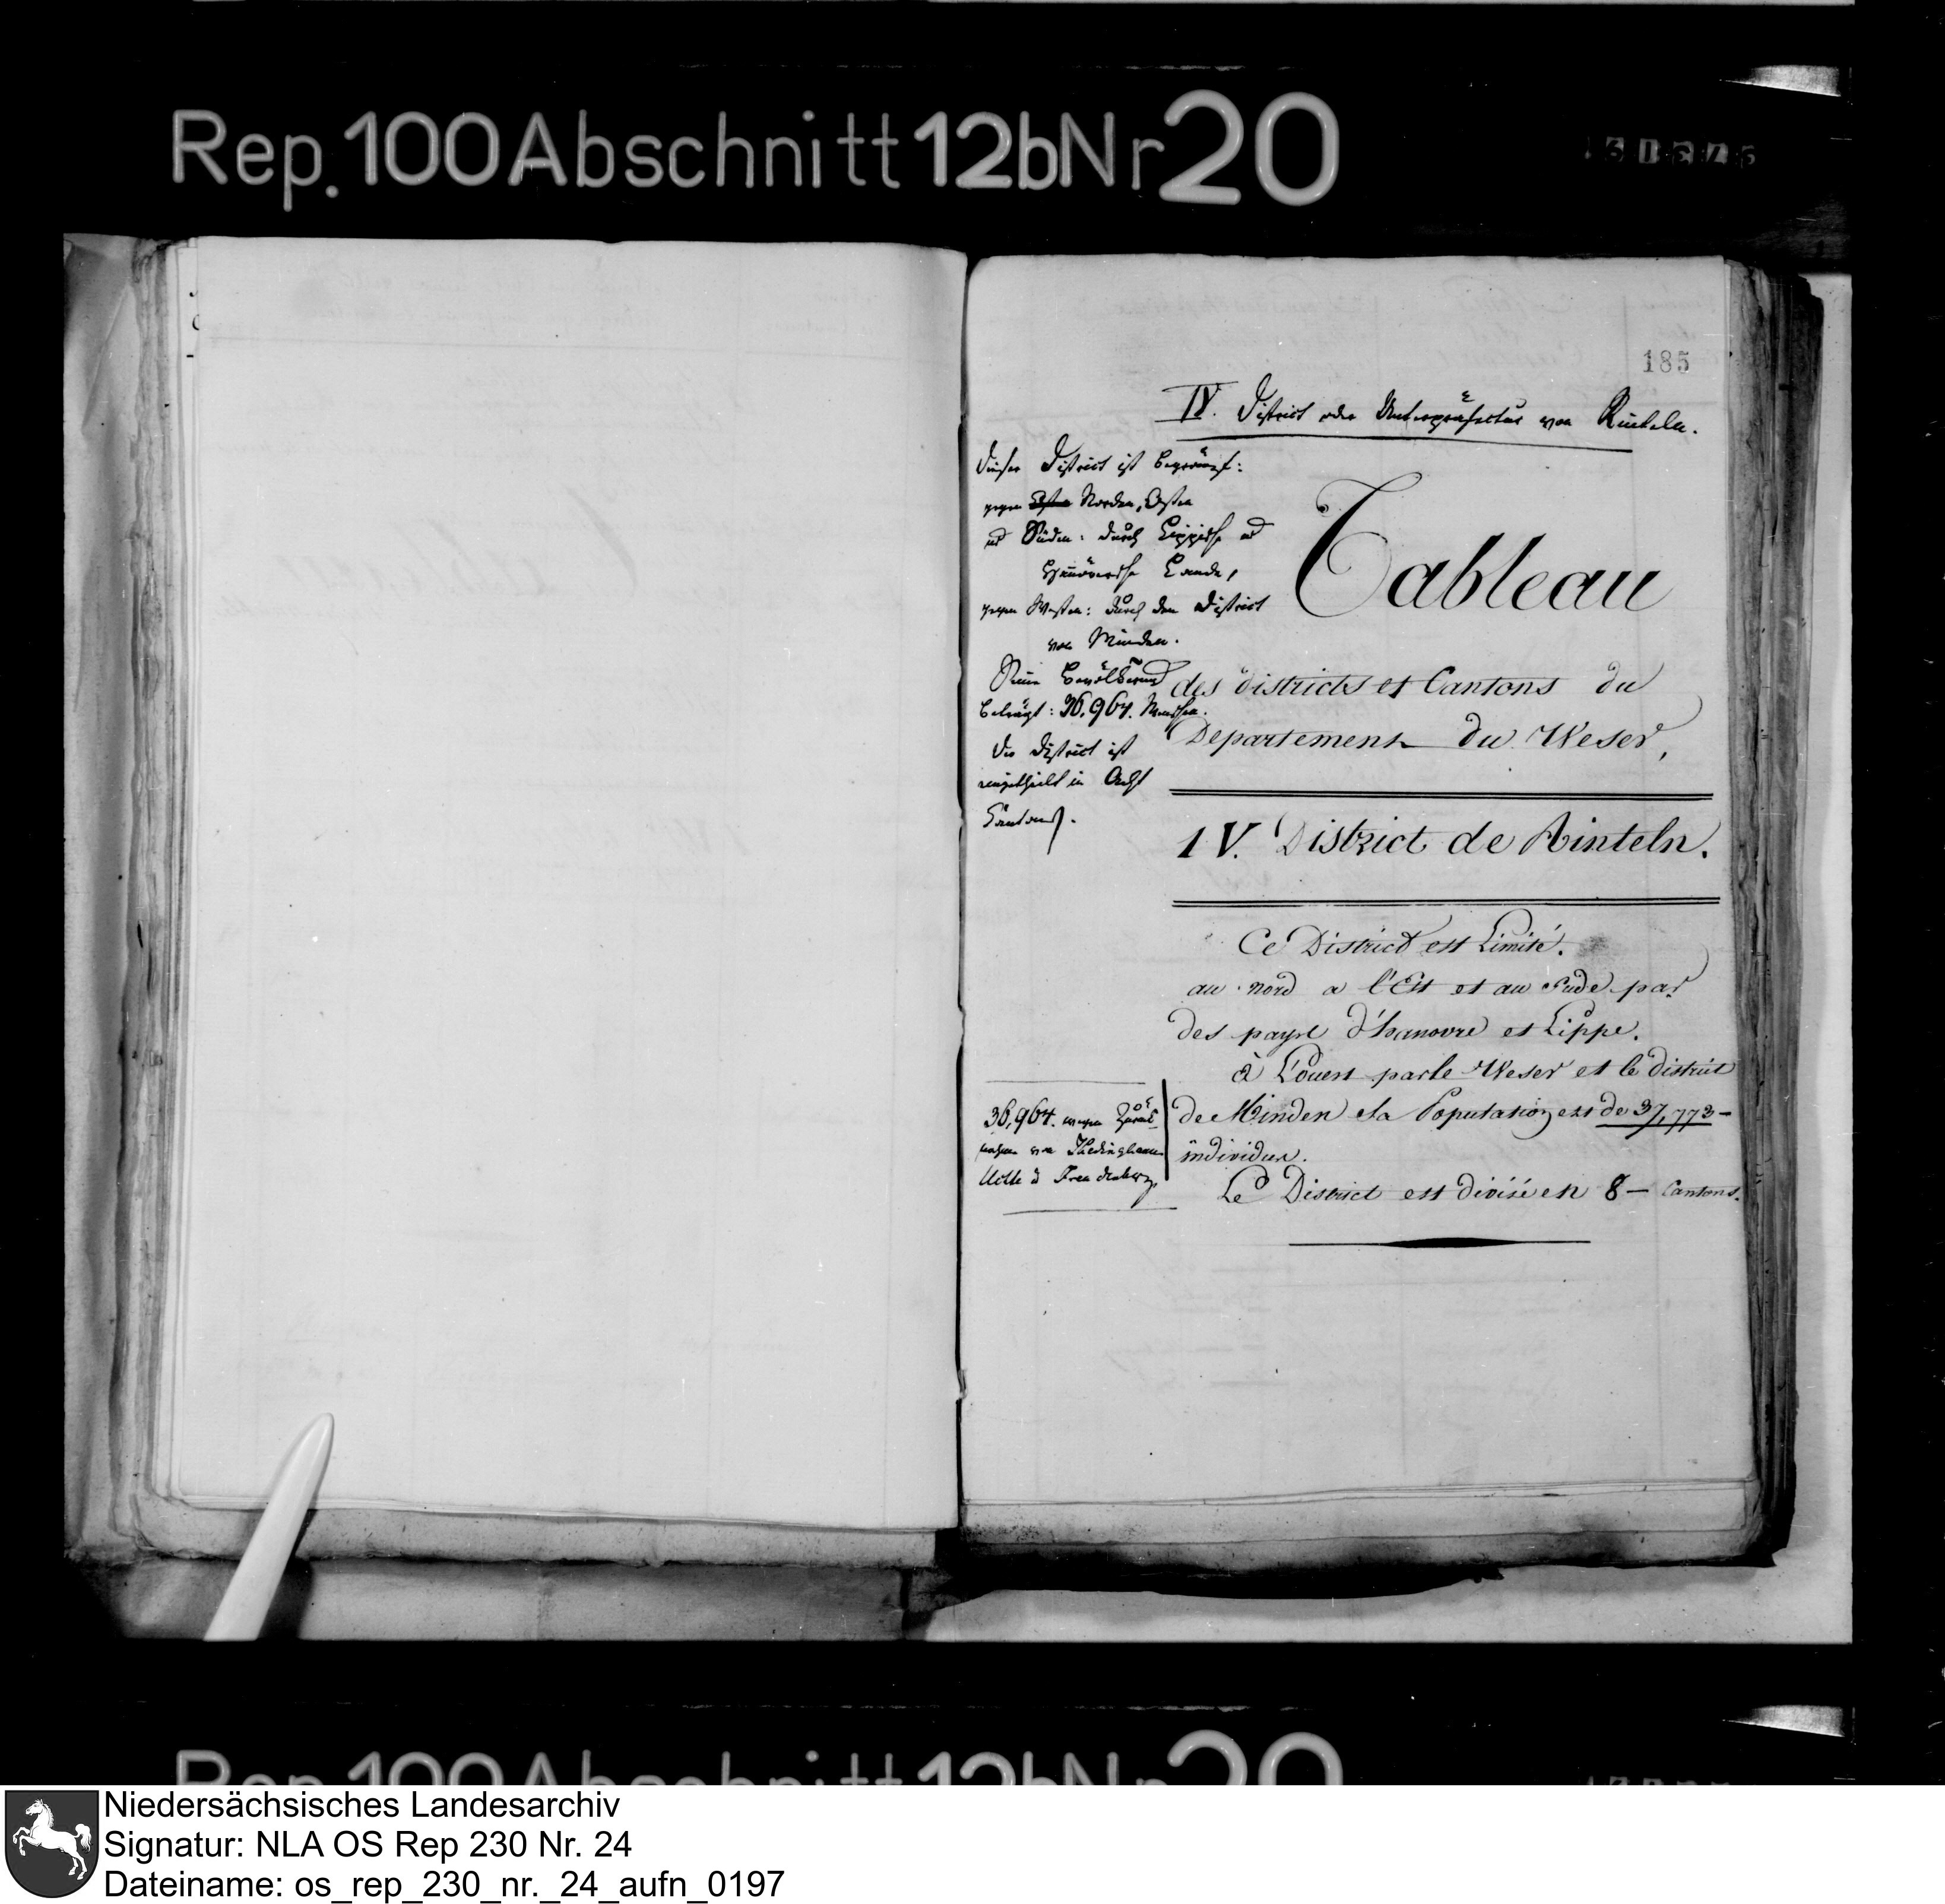 Rep. 100 Abschnitt 12b Nr 20
185
IV. District oder Unterpräfectur von Rinteln.
Dieser District ist begränzt:
gegen Norden, Osten
und Süden: durch Lippische und
Hannöversche Lande,
gegen Westen: durch den District
von Minden.
Seine Bevölkerung
beträgt: 36,964. Menschen.
Der District ist
eingetheilt in Acht
Cantons.
Tableau
des districts et Cantons du
Departement du Weser,
IV. District de Rinteln.
Ce District est Limité.
au nord a l'Est et au Sude par
des pays d'hanovre et Lippe.
à L'ouest par le Weser et le district
de Minden la Population est de 37,773 –
individus.
Le District est divisé en 8 – Cantons.
36,964. wegen Zurück-
nahme von Thedinghausen
Ucht & Freudenberg
Rep. 100 Abschnitt 12b Nr 20
Niedersächsisches Landesarchiv
Signatur: NLA OS Rep 230 Nr. 24
Dateiname: os_rep_230_nr._24_aufn_0197